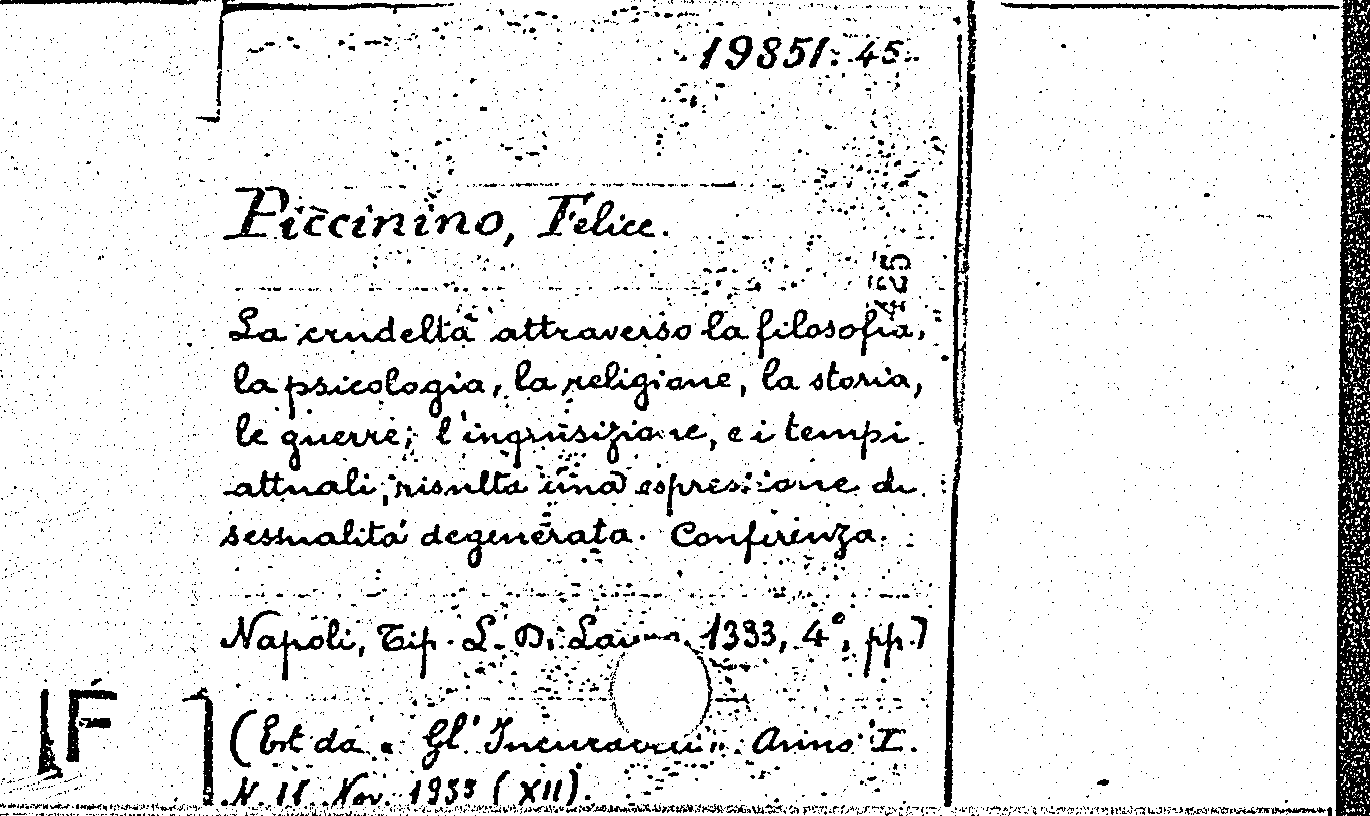 19851. 45.
Piccinino, Felice.
425
La crudeltà attraverso la filosofia,
la psicologia, la religione, la storia,
le guerre, l'inquisizione, e i tempi
attuali, risulta una espressione di
sessualità degenerata. Conferenza.
Napoli, Tip. L. Di Lauro, 1933, 4°, pp. 7
(Est da « Gl' Incurabili ». Anno I.
N 11 Nov. 1933 (XII).
IF